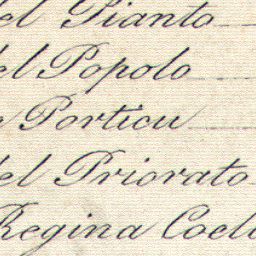 el Pianto
el Popolo
Porticu
el Priorato
Regina Coel